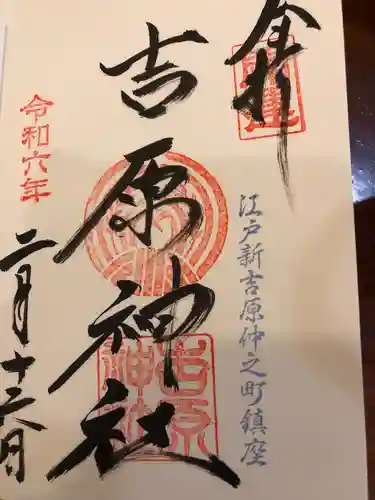 奉拝
江戸新吉原仲之町鎮座
吉原神社
吉原神社
令和六年
二月十六日